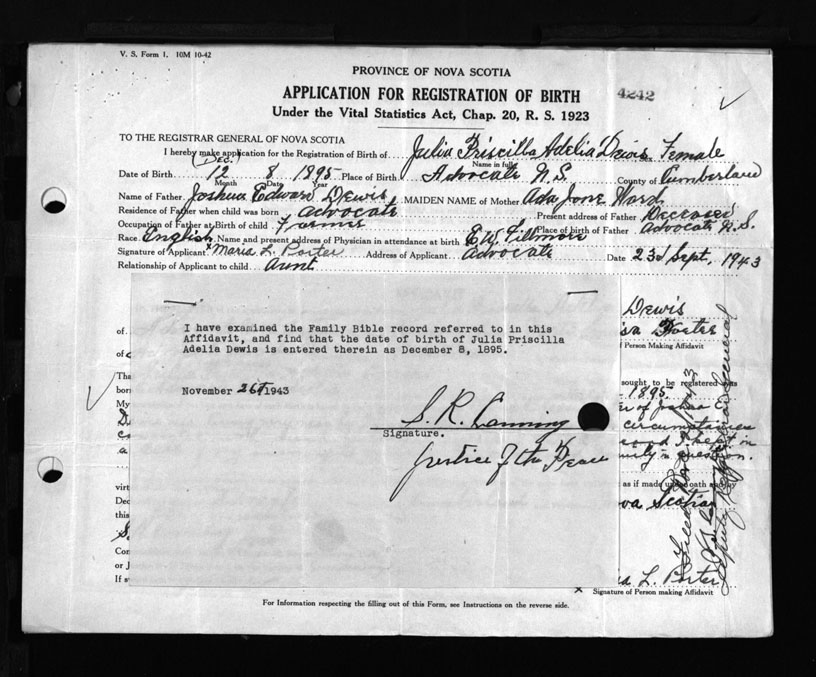 V. S. Form 1. 10M 10-42
PROVINCE OF NOVA SCOTIA
APPLICATION FOR REGISTRATION OF BIRTH
4242
Under the Vital Statistics Act, Chap. 20, R. S. 1923
TO THE REGISTRAR GENERAL OF NOVA SCOTIA
I hereby make application for the Registration of Birth of Julia Priscilla Adelia Dewis Female
(Dec.) Name in full
Date of Birth 12 8 1895 Place of Birth Advocate N.S. County of Cumberland
Month Date Year
Name of Father Joshua Edward Dewis MAIDEN NAME of Mother Ada Jane Ward
Residence of Father when child was born advocate Present address of Father Deceased
Occupation of Father at Birth of child Farmer Place of birth of Father Advocate N.S.
Race English Name and present address of Physician in attendance at birth E. W. Fillmore
Signature of Applicant Maria L. Porter Address of Applicant advocate Date 23d Sept, 1943
Relationship of Applicant to child aunt
I have examined the Family Bible record referred to in this
Affidavit, and find that the date of birth of Julia Priscilla
Adelia Dewis is entered therein as December 8, 1895.
November 26 1943
S. R. Canning
Signature.
Justice of the Peace
Dewis
of
f Person Making Affidavit
of
Tha
sought to be registered was
born
1895
My
circumstances
in
question.
as if made under oath and by
virt
Dec
va Scotia
this
Com
or J
If s
L. Porter
x Signature of Person making Affidavit
For Information respecting the filling out of this Form, see Instructions on the reverse side.